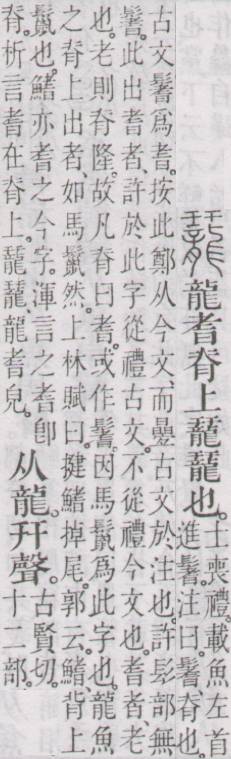 䶬 龍耆脊上䶬䶬也。
士喪禮。載魚左首
進鬐注曰。鬐、脊也。
古文鬐爲耆。按此鄭从今文、而曡古文於注也。許髟部無
鬐。此出耆者、許於此字從禮古文。不從禮今文也。耆者、老
也。老則脊隆。故凡脊曰耆。或作鬐。因馬鬣爲此字也。龍魚
之脊上出者、如馬鬣然。上林賦曰。揵鰭掉尾。郭云。鰭背上
鬣也。鰭亦耆之今字。渾言之耆卽
脊。析言耆在脊上。䶬䶬、龍耆皃。
从龍幵聲。
古賢切。
十二部。